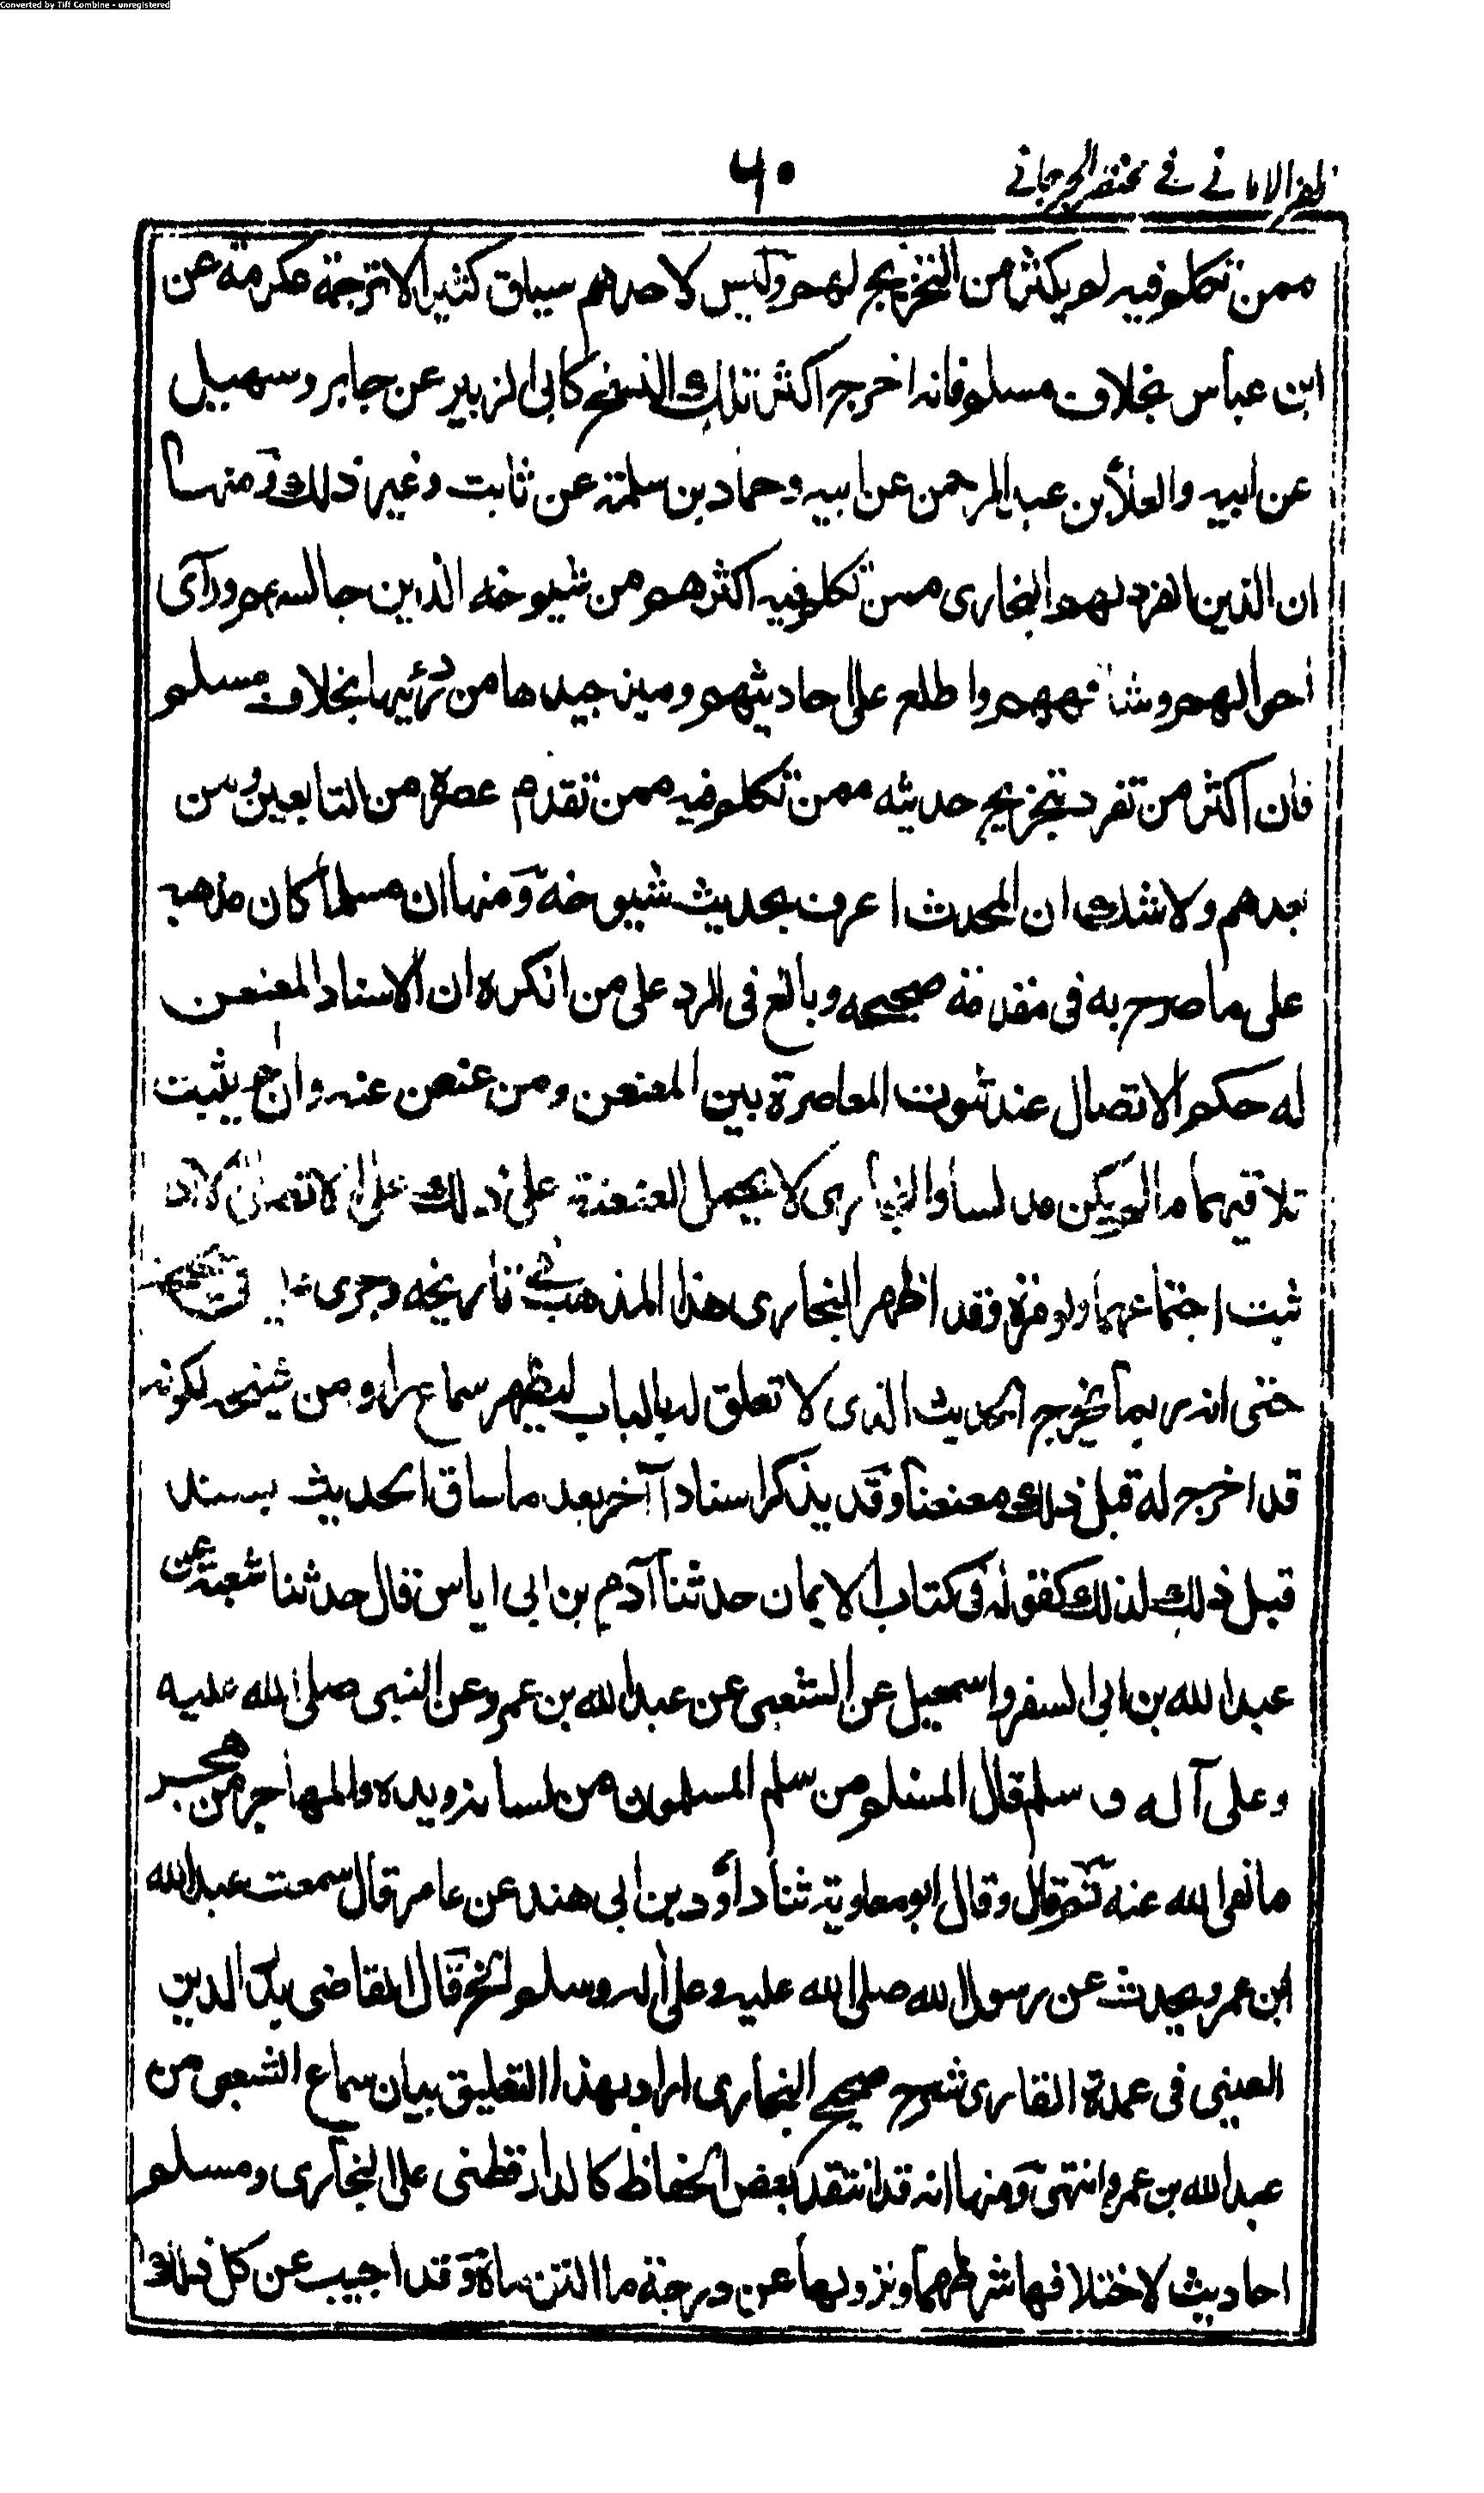 Converted by Tiff Combine - unregistered
ظفر الامانی فی مختصر الجرجانی
٦٠
ممن تكلم فيه لم يكثر من التخريج لهم وليس لاحدهم سياق كثير الا ترجمة عكرمة عن
ابن عباس بخلاف مسلم فانه اخرج اكثر تلك النسخ كابى الزبير عن جابر وسهيل
عن ابيه والعلاء بن عبد الرحمن عن ابيه وحماد بن سلمة عن ثابت وغير ذلك ومنها
ان الذين انفرد لهم البخارى ممن تكلم فيه اكثرهم من شيوخه الذين جالسهم ورأى
احوالهم وشافههم واطلع على احاديثهم وميز جيدها من رديئها بخلاف مسلم
فان اكثر من تفرد بتخريج حديثه ممن تكلم فيه ممن تقدم عصره من التابعين ومن
بعدهم ولا شك ان المحدث اعرف بحديث شيوخه ومنها ان مسلما كان مذهبه
على ما صرح به فى مقدمة صحيحه وبالغ فى الرد على من انكره ان الاسناد المعنعن
له حكم الاتصال عند ثبوت المعاصرة بين المعنعن ومن عنعن عنه وان لم يثبت
تلاقيهما ما لم يكن مدلسا والبخارى لا يحمل العنعنة على ذلك على الاتصال الا اذا
ثبت اجتماعهما ولو مرة وقد اظهر البخارى هذا المذهب فى تاريخه وجرى فى
حتى انه ربما يخرج الحديث الذى لا تعلق له بالباب ليظهر سماع راو من شيخه لكونه
قد اخرج له قبل ذلك معنعنا وقد يذكر اسنادا آخر بعد ما ساق الحديث بسند
قبل ذلك لذلك كقوله فى كتاب الايمان حدثنا آدم بن ابى اياس قال حدثنا شعبة عن
عبد الله بن ابى السفر واسمعيل عن الشعبى عن عبد الله بن عمرو عن النبى صلى الله عليه
وعلى آله وسلم قال المسلم من سلم المسلمون من لسانه ويده والمهاجر من هجر
ما نهى الله عنه ثم قال وقال ابو معاوية ثنا داؤد بن ابى هند عن عامر قال سمعت عبد الله
ابن عمرو يحدث عن رسول الله صلى الله عليه وعلى آله وسلم الخ قال القاضى بدر الدين
العينى فى عمدة القارى شرح صحيح البخارى اراد بهذا التعليق بيان سماع الشعبى من
عبد الله بن عمرو انتهى ومنها انه قد انتقد بعض الحفاظ كالدارقطنى على البخارى ومسلم
احاديث لاختلافها شرطهما ونزولها عن درجة ما التزماه وقد اجيب عن كل ذلك